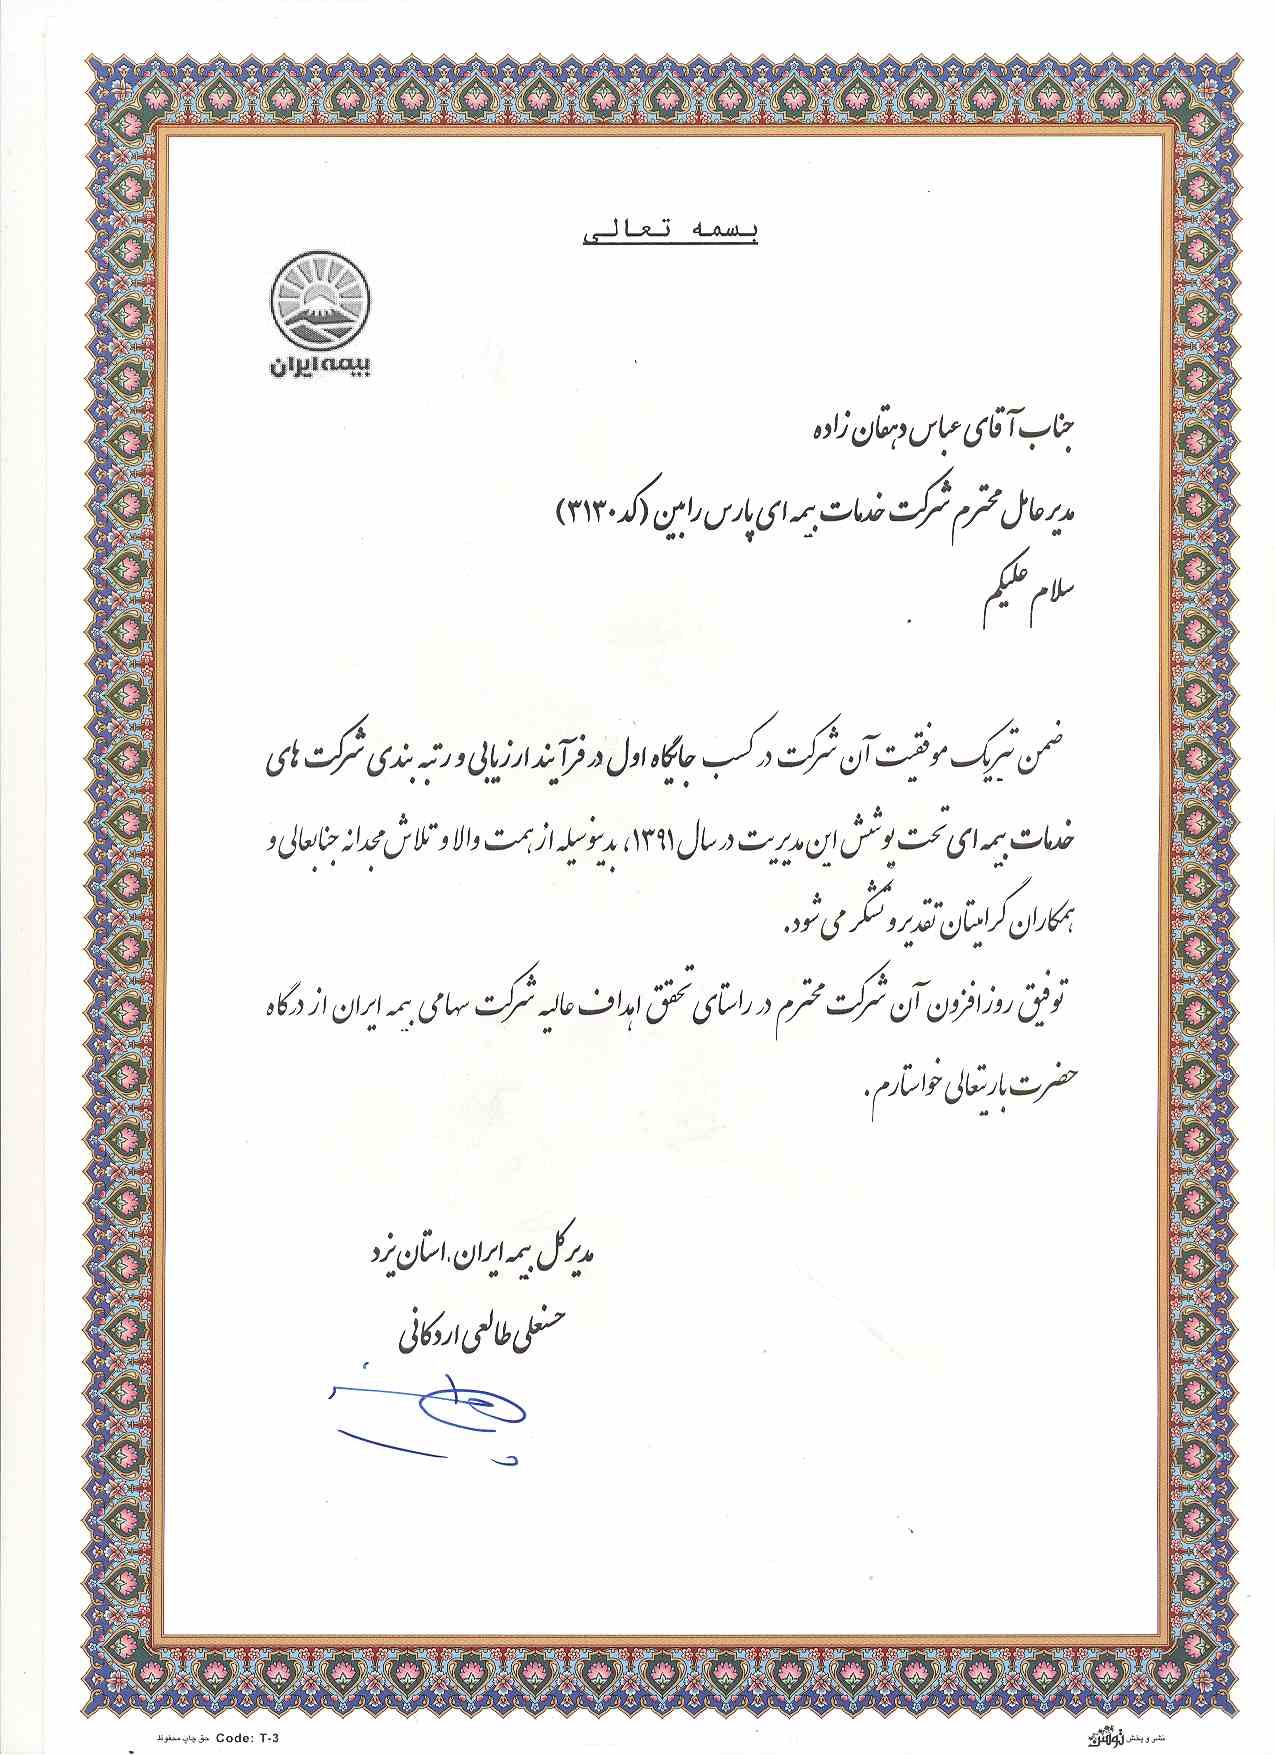 بسمه تعالی
بیمه ایران
جناب آقای عباس دهقان زاده
مدیرعامل محترم شرکت خدمات بیمه ای پارس رامین (کد ۳۱۳۰)
سلام علیکم
ضمن تبریک موفقیت آن شرکت در کسب جایگاه اول در فرآیند ارزیابی و رتبه بندی شرکت های
خدمات بیمه ای تحت پوشش این مدیریت در سال ۱۳۹۱، بدینوسیله از همت والا و تلاش مجدانه جنابعالی و
همکاران گرامیتان تقدیر و تشکر می شود.
توفیق روز افزون آن شرکت محترم در راستای تحقق اهداف عالیه شرکت سهامی بیمه ایران از درگاه
حضرت باریتعالی خواستارم.
مدیر کل بیمه ایران، استان یزد
حسنعلی طالعی اردکانی
حق چاپ محفوظ Code: T-3
نشر و پخش